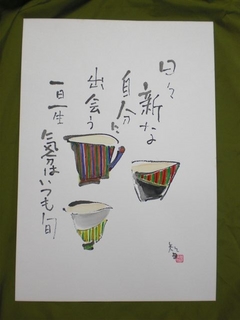 日々
新な
自分に
出会う
一日一生
気分はいつも旬